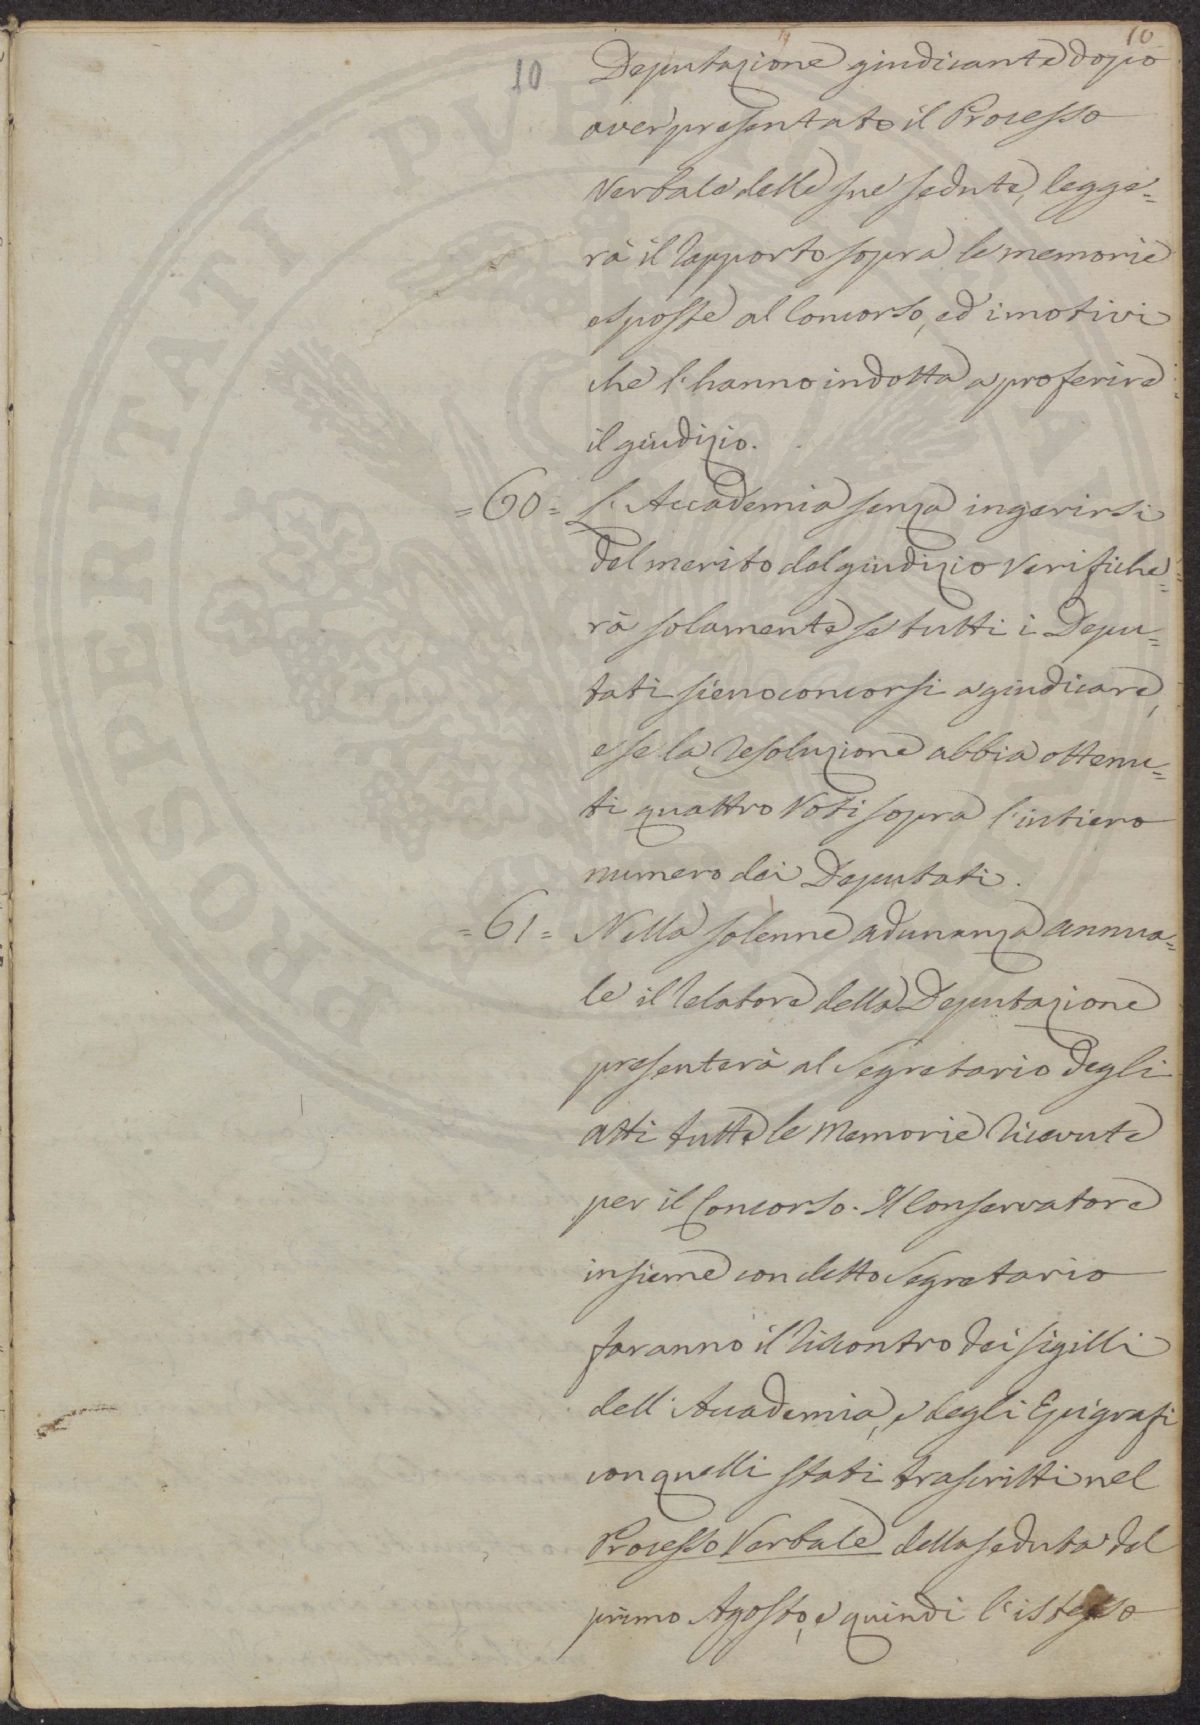 10
10
Deputazione giudicante dopo
aver presentato il Processo
Verbale delle sue sedute, legge=
rà il rapporto sopra le memorie
esposte al Concorso, ed i motivi
che l'hanno indotta a proferire
il giudizio.
=60= L'Accademia senza ingerirsi
del merito del giudizio verifiche=
rà solamente se tutti i Depu=
tati sieno concorsi a giudicare,
e se la resoluzione abbia ottenu=
ti quattro Voti sopra l'intiero
numero dei Deputati.
=61= Nella solenne adunanza annua=
le il relatore della Deputazione
presenterà al Segretario degli
atti tutte le Memorie ricevute
per il Concorso. Il Conservatore
insieme con detto Segretario
faranno il riscontro dei sigilli
dell'Accademia, e degli Epigrafi
con quelli stati trascritti nel
Processo Verbale della seduta del
primo Agosto, e quindi l'istesso
PROSPERITATI PVBLICAE